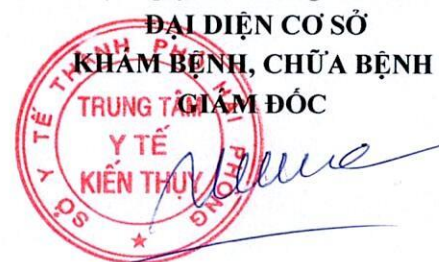 ĐẠI DIỆN CƠ SỞ
KHÁM BỆNH, CHỮA BỆNH
GIÁM ĐỐC
SỞ Y TẾ THÀNH PHỐ HẢI PHÒNG
TRUNG TÂM
Y TẾ
KIẾN THỤY